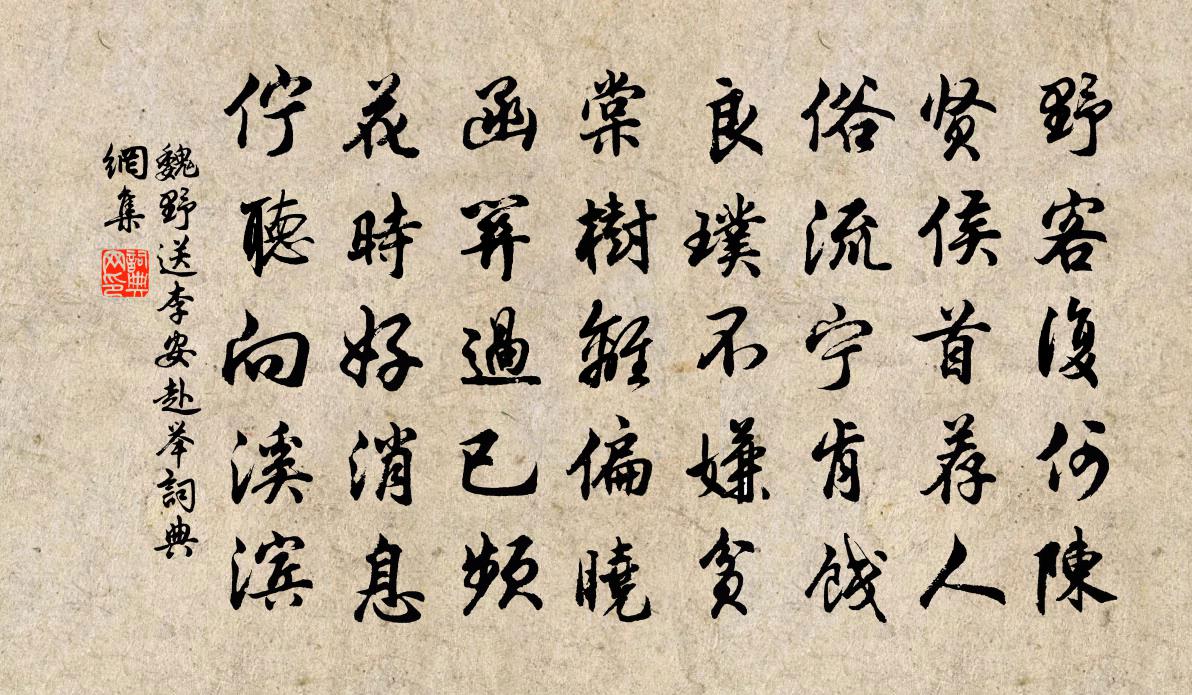 野客復何陳
贤侯首荐人
俗流宁肯餞
良璞不嫌贫
棠樹離偏曉
函關過已频
花時好消息
佇聽向溪滨
魏野送李安赴举詞典
網集
詞典
网印